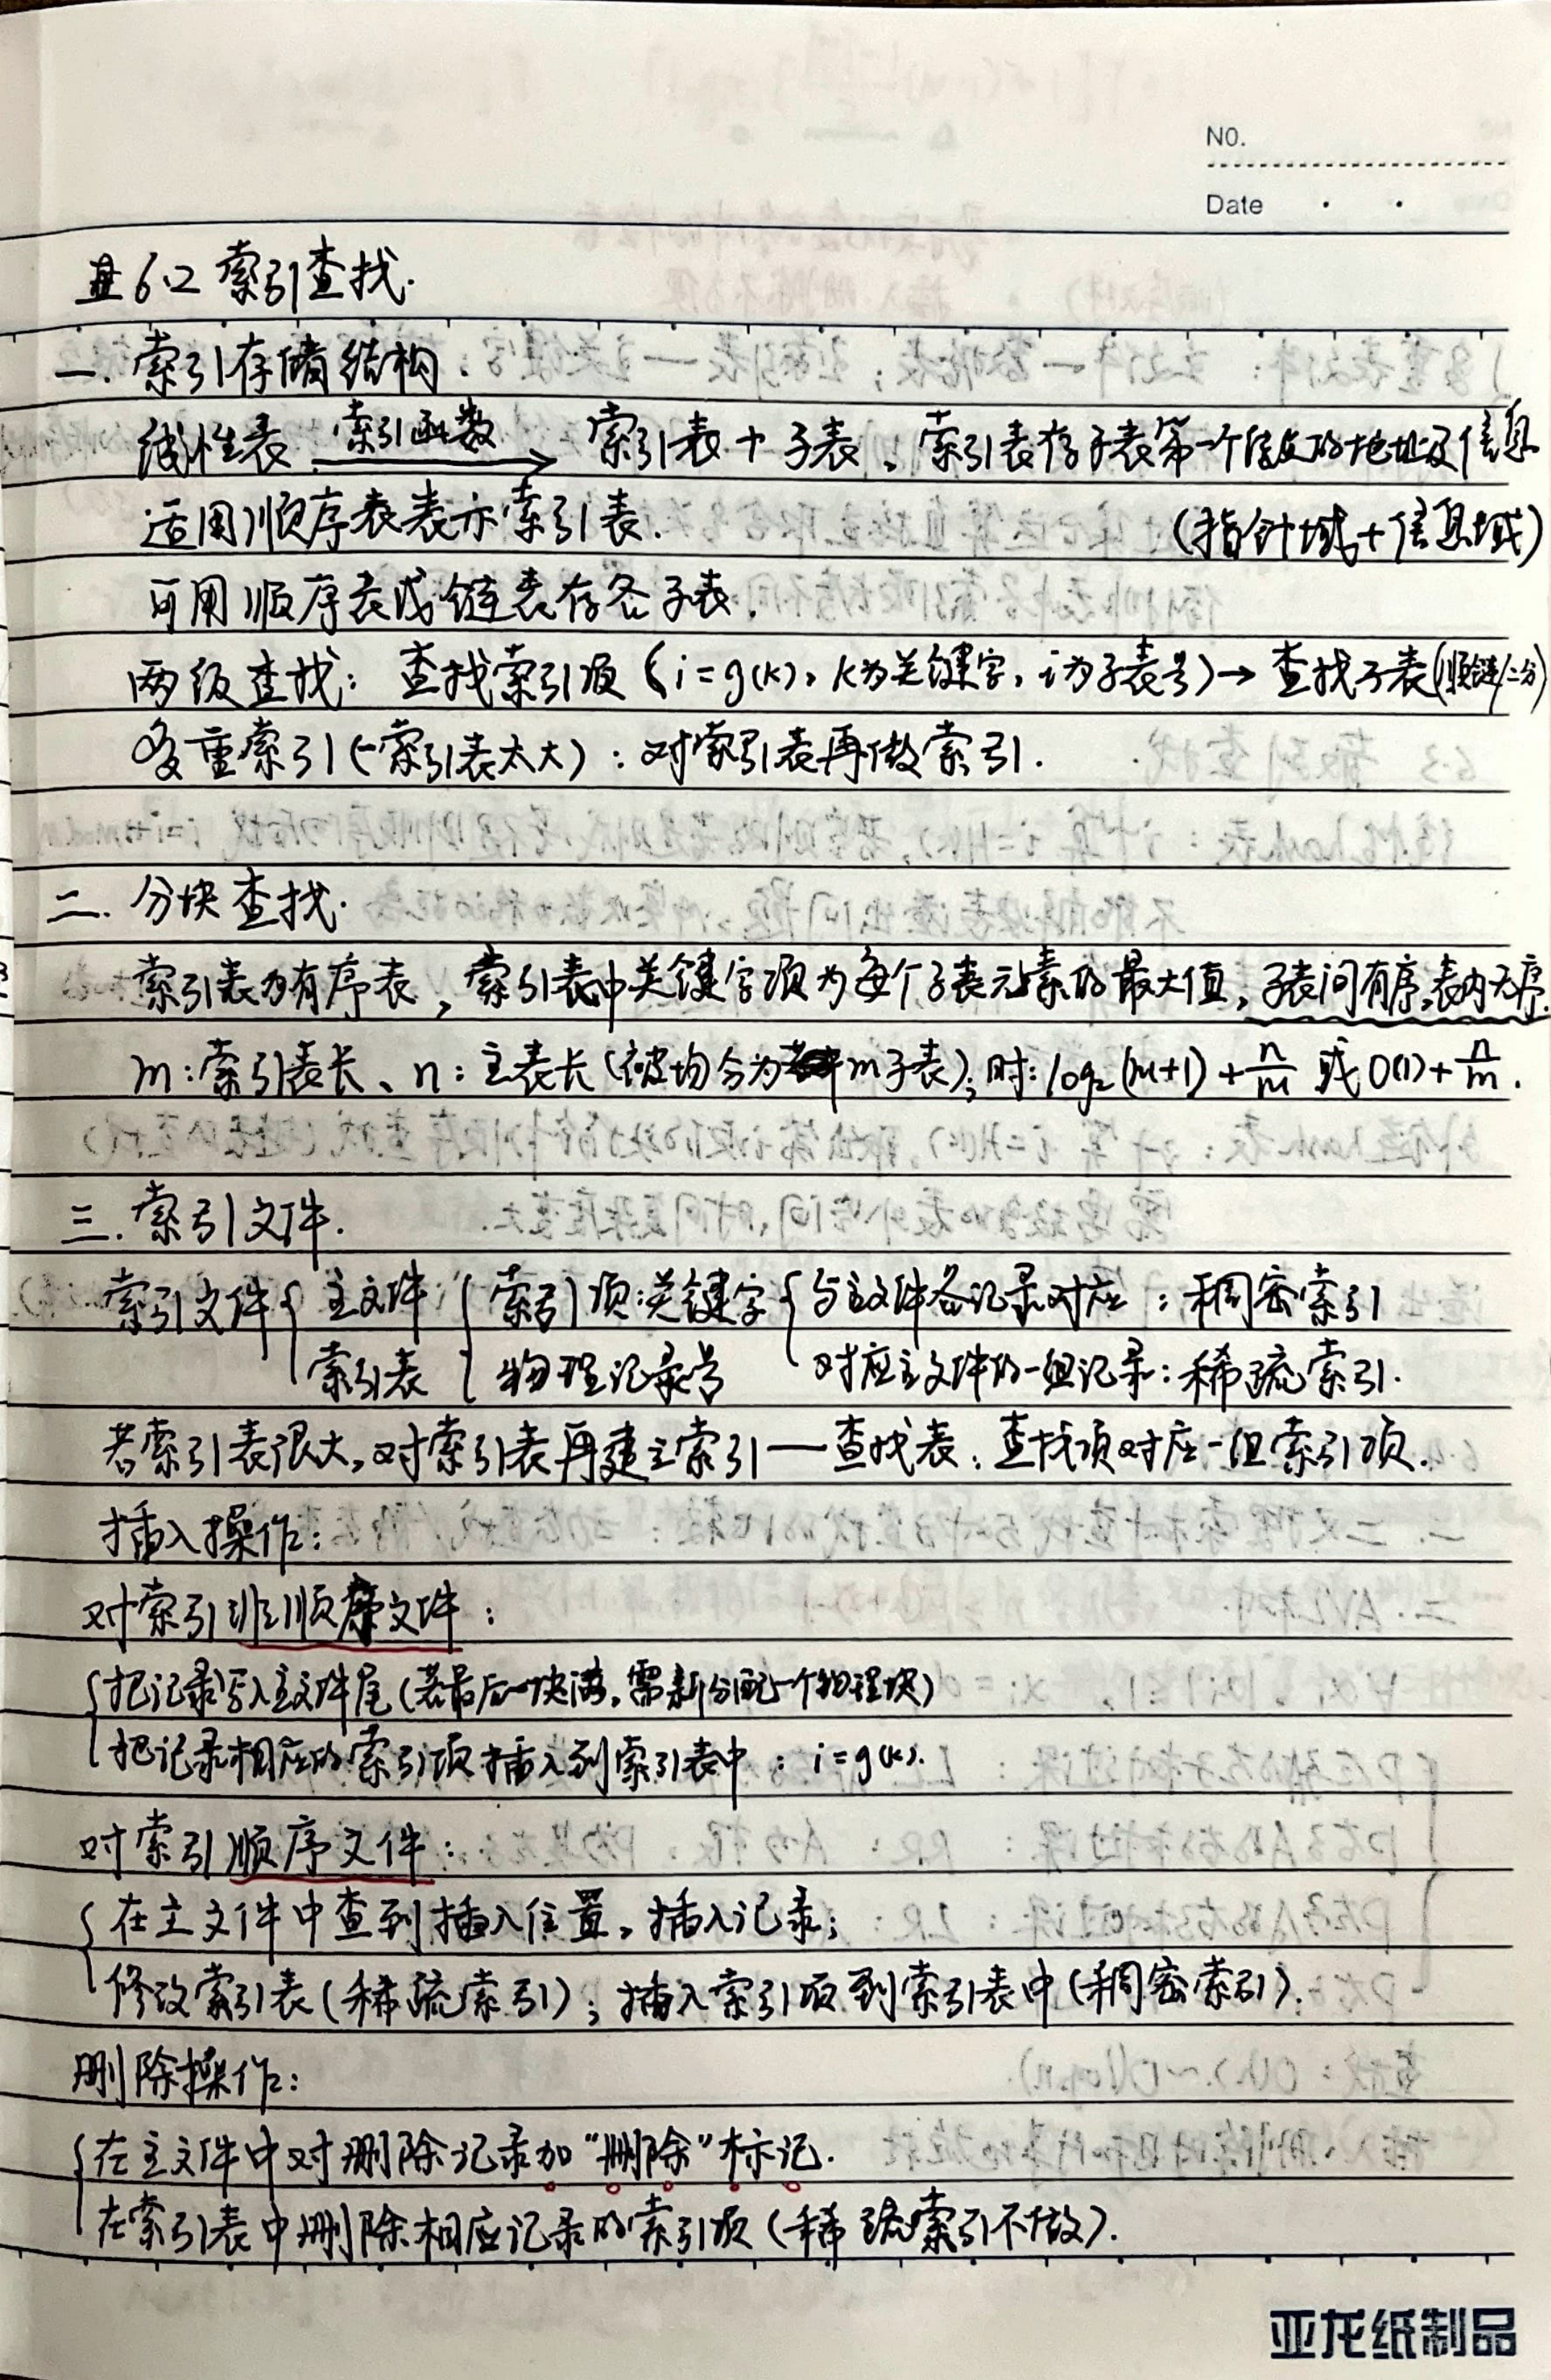 NO.
Date
6.2 索引查找.
一. 索引存储结构.
线性表 索引函数 → 索引表 + 子表。索引表存子表第一个结点的地址及信息
适用顺序表表示索引表. (指针域+信息域)
可用顺序表或链表存各子表.
两级查找: 查找索引项 (i=g(k), k为关键字, i为子表号) → 查找子表(顺链/二分)
多重索引(-索引表太大): 对索引表再做索引.
二. 分块查找.
索引表为有序表, 索引表中关键字项为每个子表元素的最大值, 子表间有序,表内无序.
m:索引表长、n:主表长(被均分为m子表); 时: log₂(m+1)+n/m 或 O(1)+n/m.
三. 索引文件.
索引文件 { 主文件 { 索引项:关键字 { 与主文件各记录对应 : 稠密索引
索引表 物理记录号 对应主文件的一组记录: 稀疏索引.
若索引表很大, 对索引表再建立索引 — 查找表: 查找项对应一组索引项.
插入操作:
对索引非顺序文件:
{ 把记录写入主文件尾 (若最后一块满, 需新分配一个物理块)
把记录相应的索引项插入到索引表中: i=g(k).
对索引顺序文件:
{ 在主文件中查到插入位置, 插入记录;
修改索引表(稀疏索引); 插入索引项到索引表中(稠密索引).
删除操作:
{ 在主文件中对删除记录加“删除”标记.
在索引表中删除相应记录的索引项 (稀疏索引不做).
亚龙纸制品